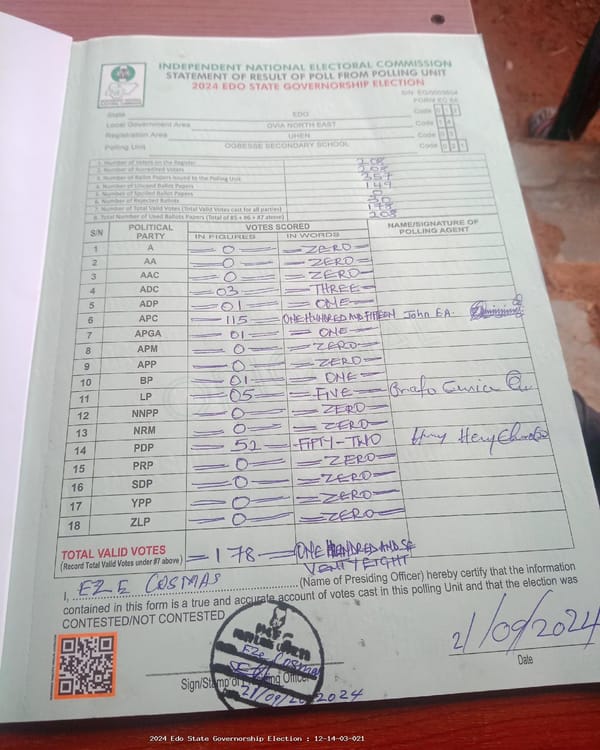 INDEPENDENT NATIONAL ELECTORAL COMMISSION
STATEMENT OF RESULT OF POLL FROM POLLING UNIT
2024 EDO STATE GOVERNORSHIP ELECTION
FORM EC 8A
State EDO Code
Local Government Area OVIA NORTH EAST Code
Registration Area UHEN Code
Polling Unit OGBESSE SECONDARY SCHOOL Code
1. Number of Voters on the Register 208
2. Number of Accredited Voters 208
3. Number of Ballot Papers Issued to the Polling Unit 357
4. Number of Unused Ballot Papers 149
5. Number of Spoiled Ballot Papers 0
6. Number of Rejected Ballots 30
7. Number of Total Valid Votes (Total Valid Votes cast for all parties) 178
8. Total Number of Used Ballots Papers (Total of #5 + #6 + #7 above) 208
S/N POLITICAL PARTY VOTES SCORED NAME/SIGNATURE OF POLLING AGENT
IN FIGURES IN WORDS
1 A 0 ZERO
2 AA 0 ZERO
3 AAC 0 ZERO
4 ADC 03 THREE
5 ADP 01 ONE
6 APC 115 ONE HUNDRED AND FIFTEEN John E.A.
7 APGA 01 ONE
8 APM 0 ZERO
9 APP 0 ZERO
10 BP 01 ONE
11 LP 05 FIVE
12 NNPP 0 ZERO
13 NRM 0 ZERO
14 PDP 52 FIFTY-TWO
15 PRP 0 ZERO
16 SDP 0 ZERO
17 YPP 0 ZERO
18 ZLP 0 ZERO
TOTAL VALID VOTES =178= ONE HUNDRED AND SE
(Record Total Valid Votes under #7 above) VENTY EIGHT
I, EZE COSMAS (Name of Presiding Officer) hereby certify that the information
contained in this form is a true and accurate account of votes cast in this polling Unit and that the election was
CONTESTED/NOT CONTESTED
Eze Cosmas
21/09/2024
Sign/Stamp of Presiding Officer
21/09/2024
Date
2024 Edo State Governorship Election : 12-14-03-021